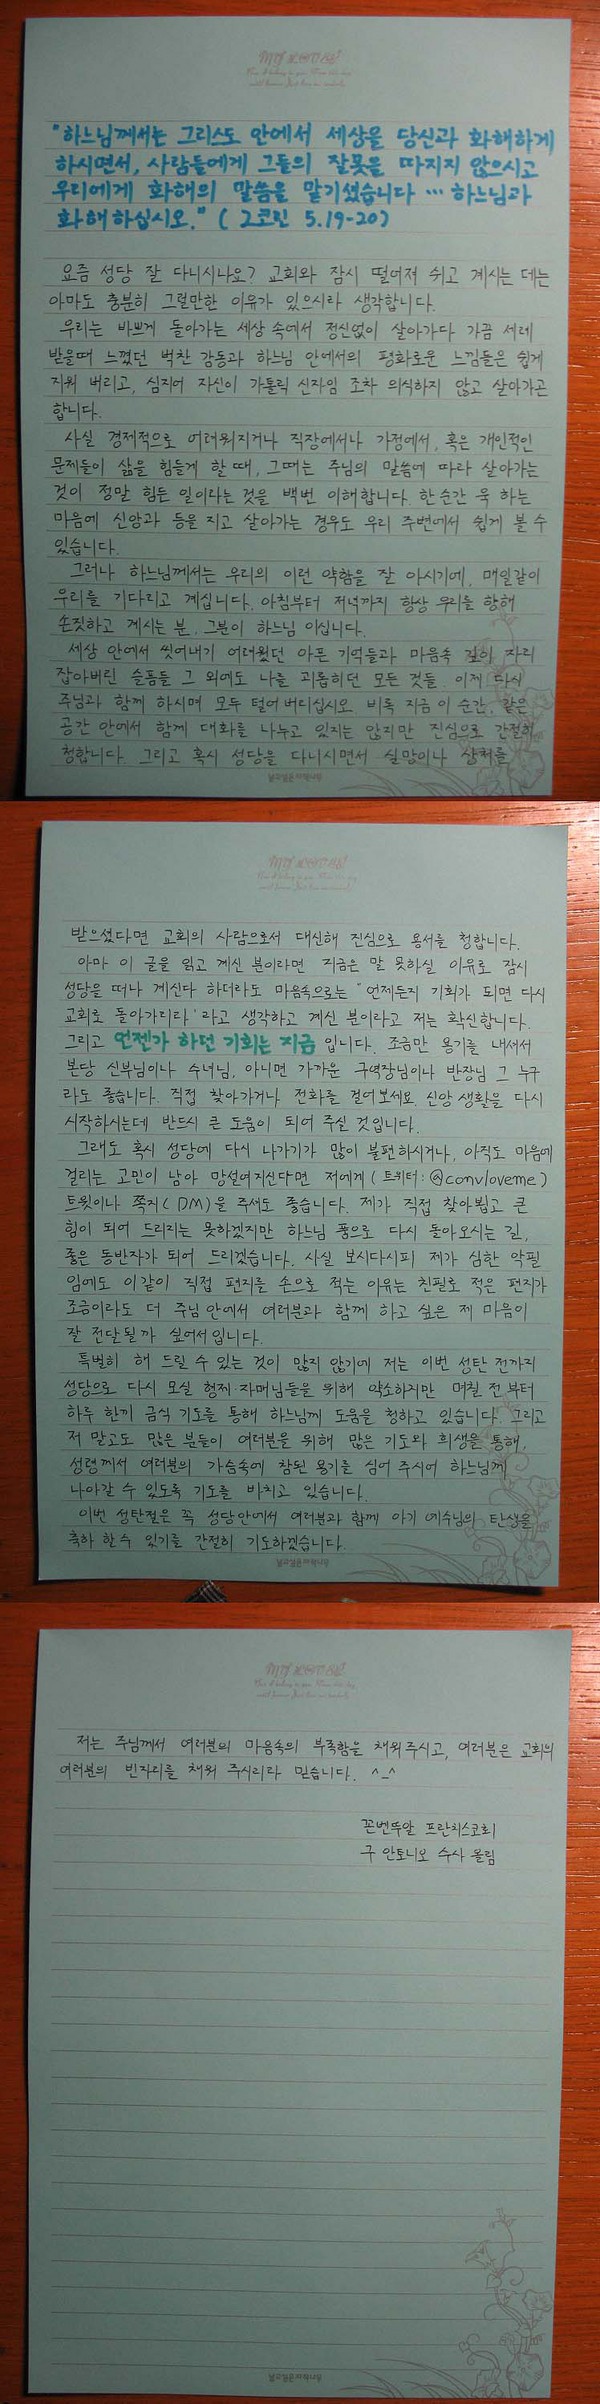 "하느님께서는 그리스도 안에서 세상을 당신과 화해하게
하시면서, 사람들에게 그들의 잘못을 따지지 않으시고
우리에게 화해의 말씀을 맡기셨습니다 … 하느님과
화해하십시오." (2코린 5.19-20)
요즘 성당 잘 다니시나요? 교회와 잠시 떨어져 쉬고 계시는 데는
아마도 충분히 그럴만한 이유가 있으시라 생각합니다.
우리는 바쁘게 돌아가는 세상 속에서 정신없이 살아가다 가끔 세례
받을때 느꼈던 벅찬 감동과 하느님 안에서의 평화로운 느낌들은 쉽게
지워 버리고, 심지어 자신이 가톨릭 신자임 조차 의식하지 않고 살아가곤
합니다.
사실 경제적으로 어려워지거나 직장에서나 가정에서, 혹은 개인적인
문제들이 삶을 힘들게 할 때, 그때는 주님의 말씀에 따라 살아가는
것이 정말 힘든 일이라는 것을 백번 이해합니다. 한순간 욱 하는
마음에 신앙과 등을 지고 살아가는 경우도 우리 주변에서 쉽게 볼 수
있습니다.
그러나 하느님께서는 우리의 이런 약함을 잘 아시기에, 매일같이
우리를 기다리고 계십니다. 아침부터 저녁까지 항상 우리를 향해
손짓하고 계시는 분, 그분이 하느님 이십니다.
세상 안에서 씻어내기 어려웠던 아픈 기억들과 마음속 깊이 자리
잡아버린 슬픔들 그 외에도 나를 괴롭히던 모든 것들. 이제 다시
주님과 함께 하시며 모두 털어 버리십시오. 비록 지금 이 순간, 같은
공간 안에서 함께 대화를 나누고 있지는 않지만 진심으로 간절히
청합니다. 그리고 혹시 성당을 다니시면서 실망이나 상처를
받으셨다면 교회의 사람으로서 대신해 진심으로 용서를 청합니다.
아마 이 글을 읽고 계신 분이라면 지금은 말 못하실 이유로 잠시
성당을 떠나 계신다 하더라도 마음속으로는 "언제든지 기회가 되면 다시
교회로 돌아가리라'라고 생각하고 계신 분이라고 저는 확신합니다.
그리고 언젠가 하던 기회는 지금 입니다. 조금만 용기를 내셔서
본당 신부님이나 수녀님, 아니면 가까운 구역장님이나 반장님 그 누구
라도 좋습니다. 직접 찾아가거나 전화를 걸어보세요. 신앙 생활을 다시
시작하시는데 반드시 큰 도움이 되어 주실 것입니다.
그래도 혹시 성당에 다시 나가기가 많이 불편하시거나, 아직도 마음에
걸리는 고민이 남아 망설여지신다면 저에게 (트위터: @conv1oveme)
트윗이나 쪽지(DM)을 주셔도 좋습니다. 제가 직접 찾아뵙고 큰
힘이 되어 드리지는 못하겠지만 하느님 품으로 다시 돌아오시는 길,
좋은 동반자가 되어 드리겠습니다. 사실 보시다시피 제가 심한 악필
임에도 이같이 직접 편지를 손으로 적는 이유는 친필로 적은 편지가
조금이라도 더 주님 안에서 여러분과 함께 하고 싶은 제 마음이
잘 전달될까 싶어서입니다.
특별히 해 드릴 수 있는 것이 많지 않기에 저는 이번 성탄 전까지
성당으로 다시 모실 형제·자매님들을 위해 약소하지만 며칠 전부터
하루 한끼 금식 기도를 통해 하느님께 도움을 청하고 있습니다. 그리고
저 말고도 많은 분들이 여러분을 위해 많은 기도와 희생을 통해,
성령께서 여러분의 가슴속에 참된 용기를 심어 주시어 하느님께
나아갈 수 있도록 기도를 바치고 있습니다.
이번 성탄절은 꼭 성당안에서 여러분과 함께 아기 예수님의 탄생을
축하 할 수 있기를 간절히 기도하겠습니다.
저는 주님께서 여러분의 마음속의 부족함을 채워주시고, 여러분은 교회의
여러분의 빈자리를 채워 주시리라 믿습니다. ^_^
꼰벤뚜알 프란치스코회
구 안토니오 수사 올림